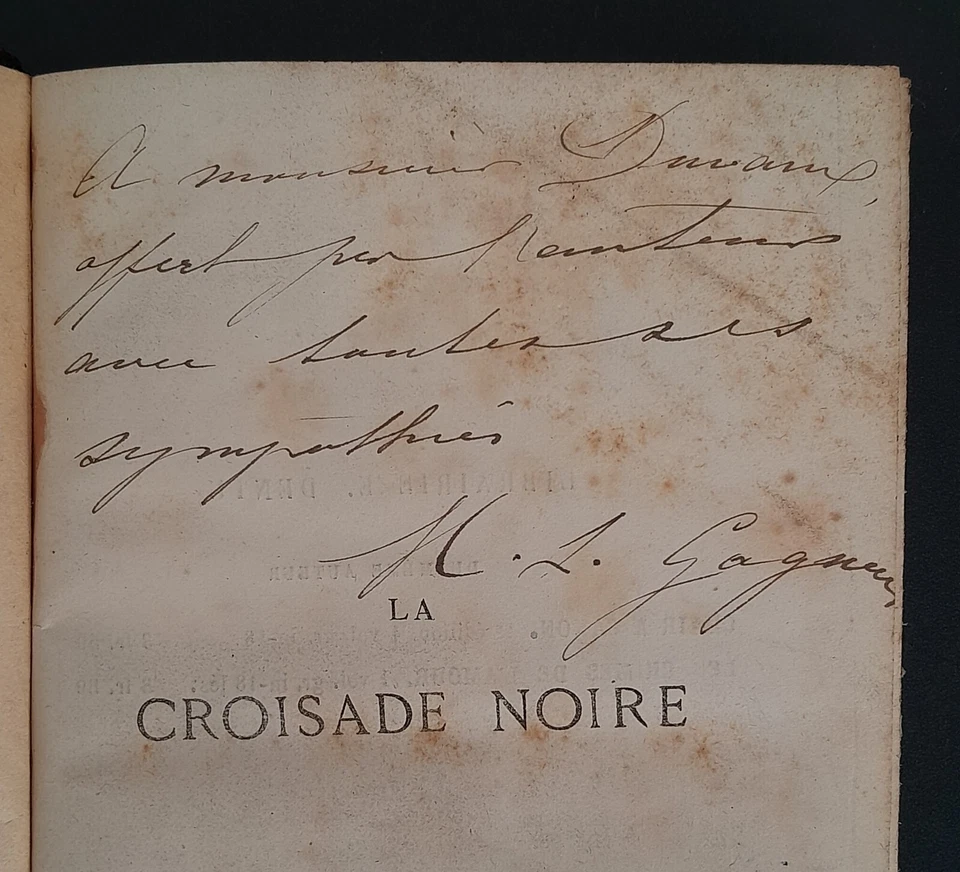 A monsieur Duvaux,
offert par l'auteur
avec toutes ses
sympathies
M. L. Gagneur
LA
CROISADE NOIRE